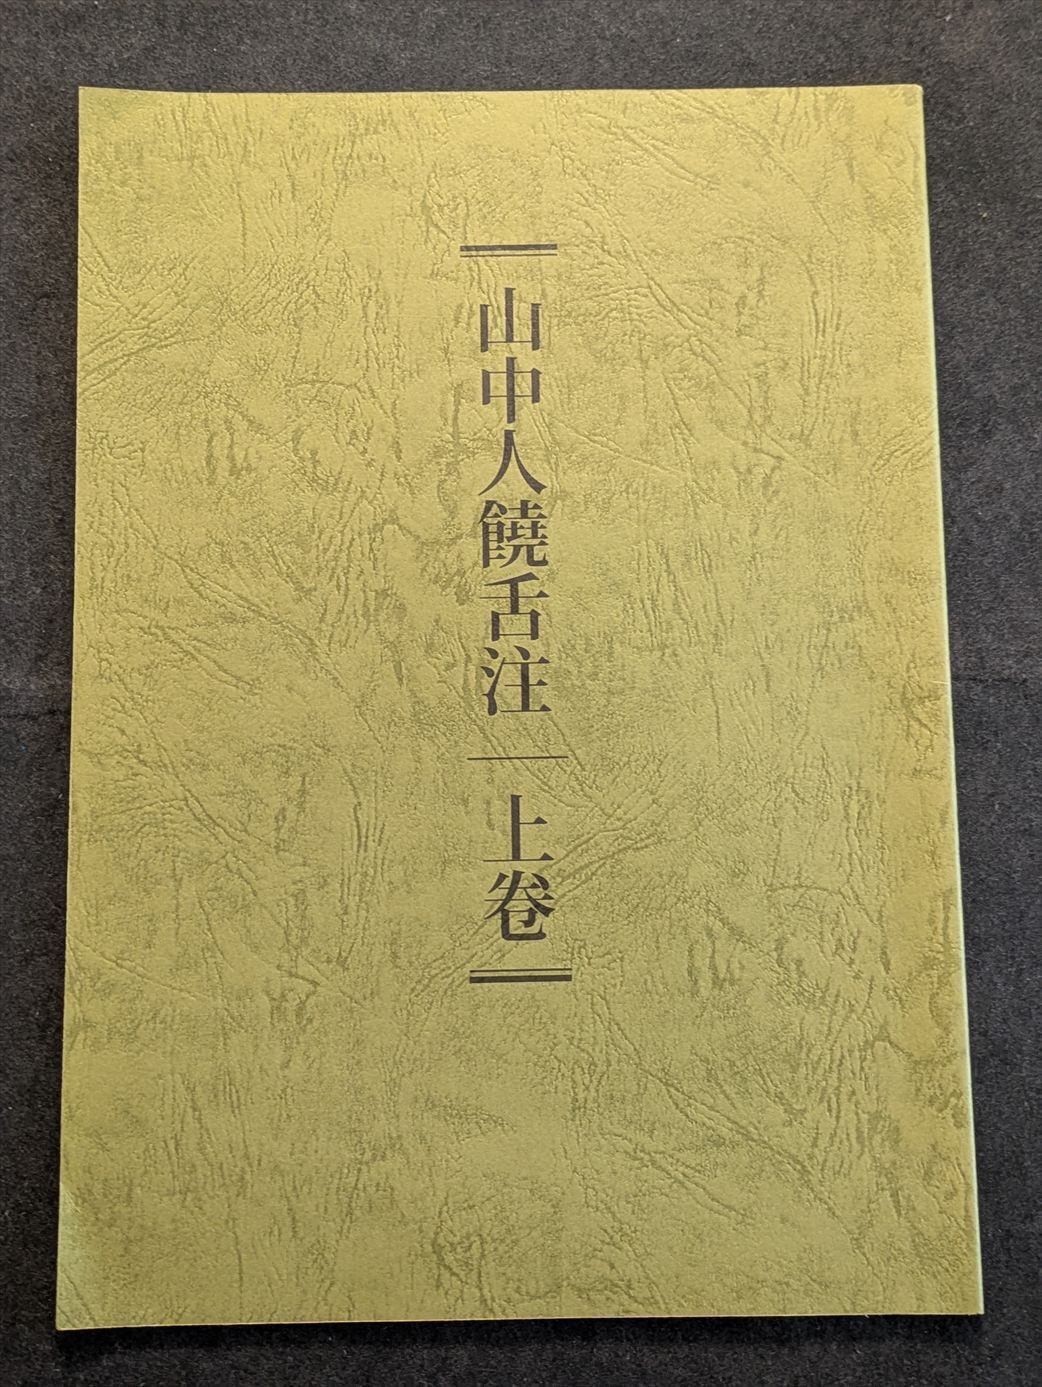 山中人饒舌注｜上巻